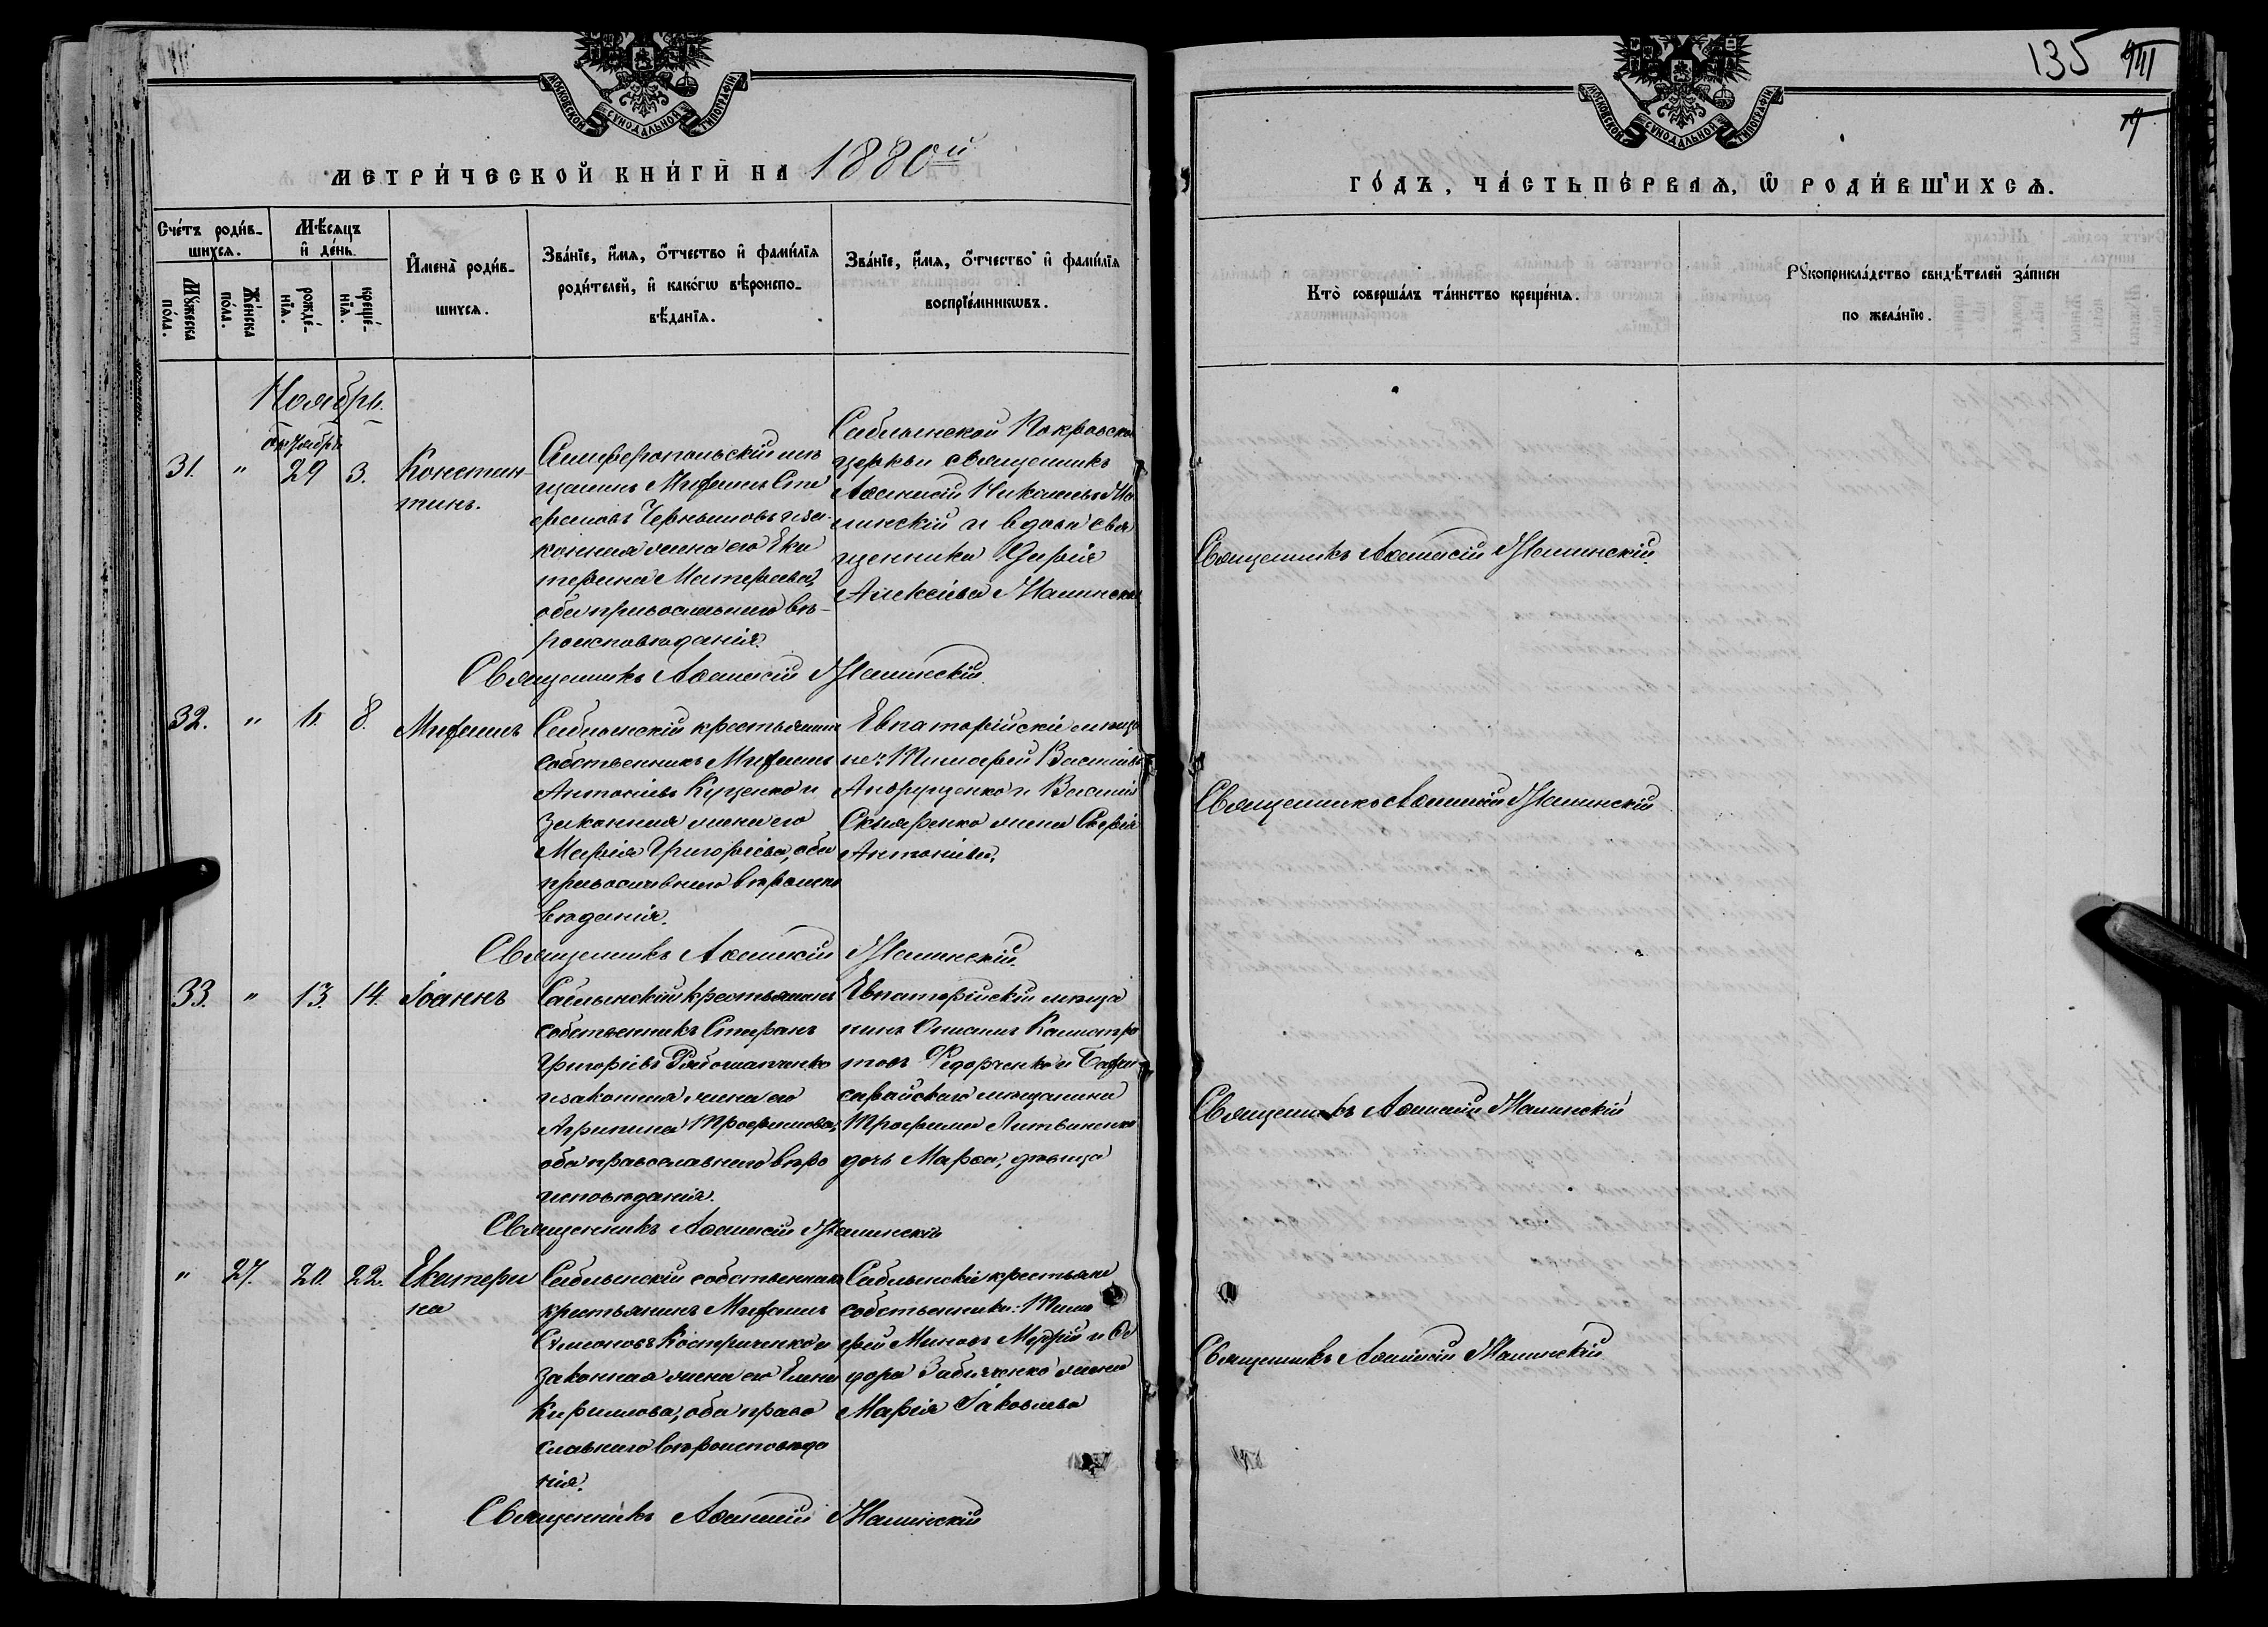 МОСКОВСКОЙ СѴНОДАЛЬНОЙ ТИПОГРАФІИ
МЕТРИ́ЧЕСКОЙ КНИ́ГИ НА 1880й
Сче́тъ роди́в-
шихся.
Мѣ́сяцъ
и҆ де́нь.
Мꙋ́жеска
по́ла.
Же́нска
по́ла.
рожде́-
нїя.
креще́-
нїя.
И҆мена̀ роди́в-
шихся.
Зва́нїе, и҆́мя, о҆́тчество и҆ фами́лїя
роди́телей, и҆ како́гѡ вѣроиспо-
вѣ́данїя.
Зва́нїе, и҆́мя, о҆́тчество и҆ фами́лїя
воспрїе́мникѡвъ.
Ноябрь.
октябрь
31. " 29 3. Констан-
тинъ.
Симферопольскій мѣ
щанинъ Михаилъ Сте
фановъ Чернышовъ и за-
конная жена его Ека
терина Матѳеева,
оба православнаго вѣ-
роисповѣданія.
Саблынской Покровской
церкви священникъ
Аѳанасій Николаевъ
и вдова свя
щенника Дарія
Алексіева
Священникъ Аѳанасій
32. " 6. 8. Михаилъ
Саблынскій крестьянинъ
собственникъ Михаилъ
Антоніевъ Куценко и
законная жена его
Марія Григоріева, оба
православнаго вѣроиспо
вѣданія.
Евпаторійскіе мѣща
не: Тимоѳей Василіевъ
Андрущенко и Василія
Скляренко жена Софія
Антоніева.
Священникъ Аѳанасій
33. " 13. 14. Іоаннъ
Саблынскій крестьянинъ
собственникъ Стефанъ
Григоріевъ Рябошапченко
и законная жена его
Агрипина Трофимова,
оба православнаго вѣро
исповѣданія.
Евпаторійскій мѣща
нинъ Калистра
товъ Федорченко и Бахчи-
сарайскаго мѣщанина
Трофима Литвиненко
дочь Марѳа, дѣвица
Священникъ Аѳанасій
" 27. 20. 22. Екатери
на
Саблынскій собственникъ
крестьянинъ Михаилъ
Симоновъ Костриченко и
законная жена его Елена
Кириллова, оба право
славнаго вѣроисповѣда
нія.
Саблынскіе крестьяне
собственники: Тимо
ѳей Миновъ и Ѳе
дора Забіяченко жена
Марія Іаковлева
Священникъ Аѳанасій
135
МОСКОВСКОЙ СѴНОДАЛЬНОЙ ТИПОГРАФІИ
ГО́ДЪ, ЧА́СТЬ ПЕ́РВАѦ, Ѡ҆ РОДИ́ВШИХСѦ.
Кто̀ соверша́лъ та́инство креще́нїя.
Рꙋкоприкла́дство свидѣ́телей за́писи
по жела́нїю.
Священникъ Аѳанасій
Священникъ Аѳанасій
Священникъ Аѳанасій
Священникъ Аѳанасій